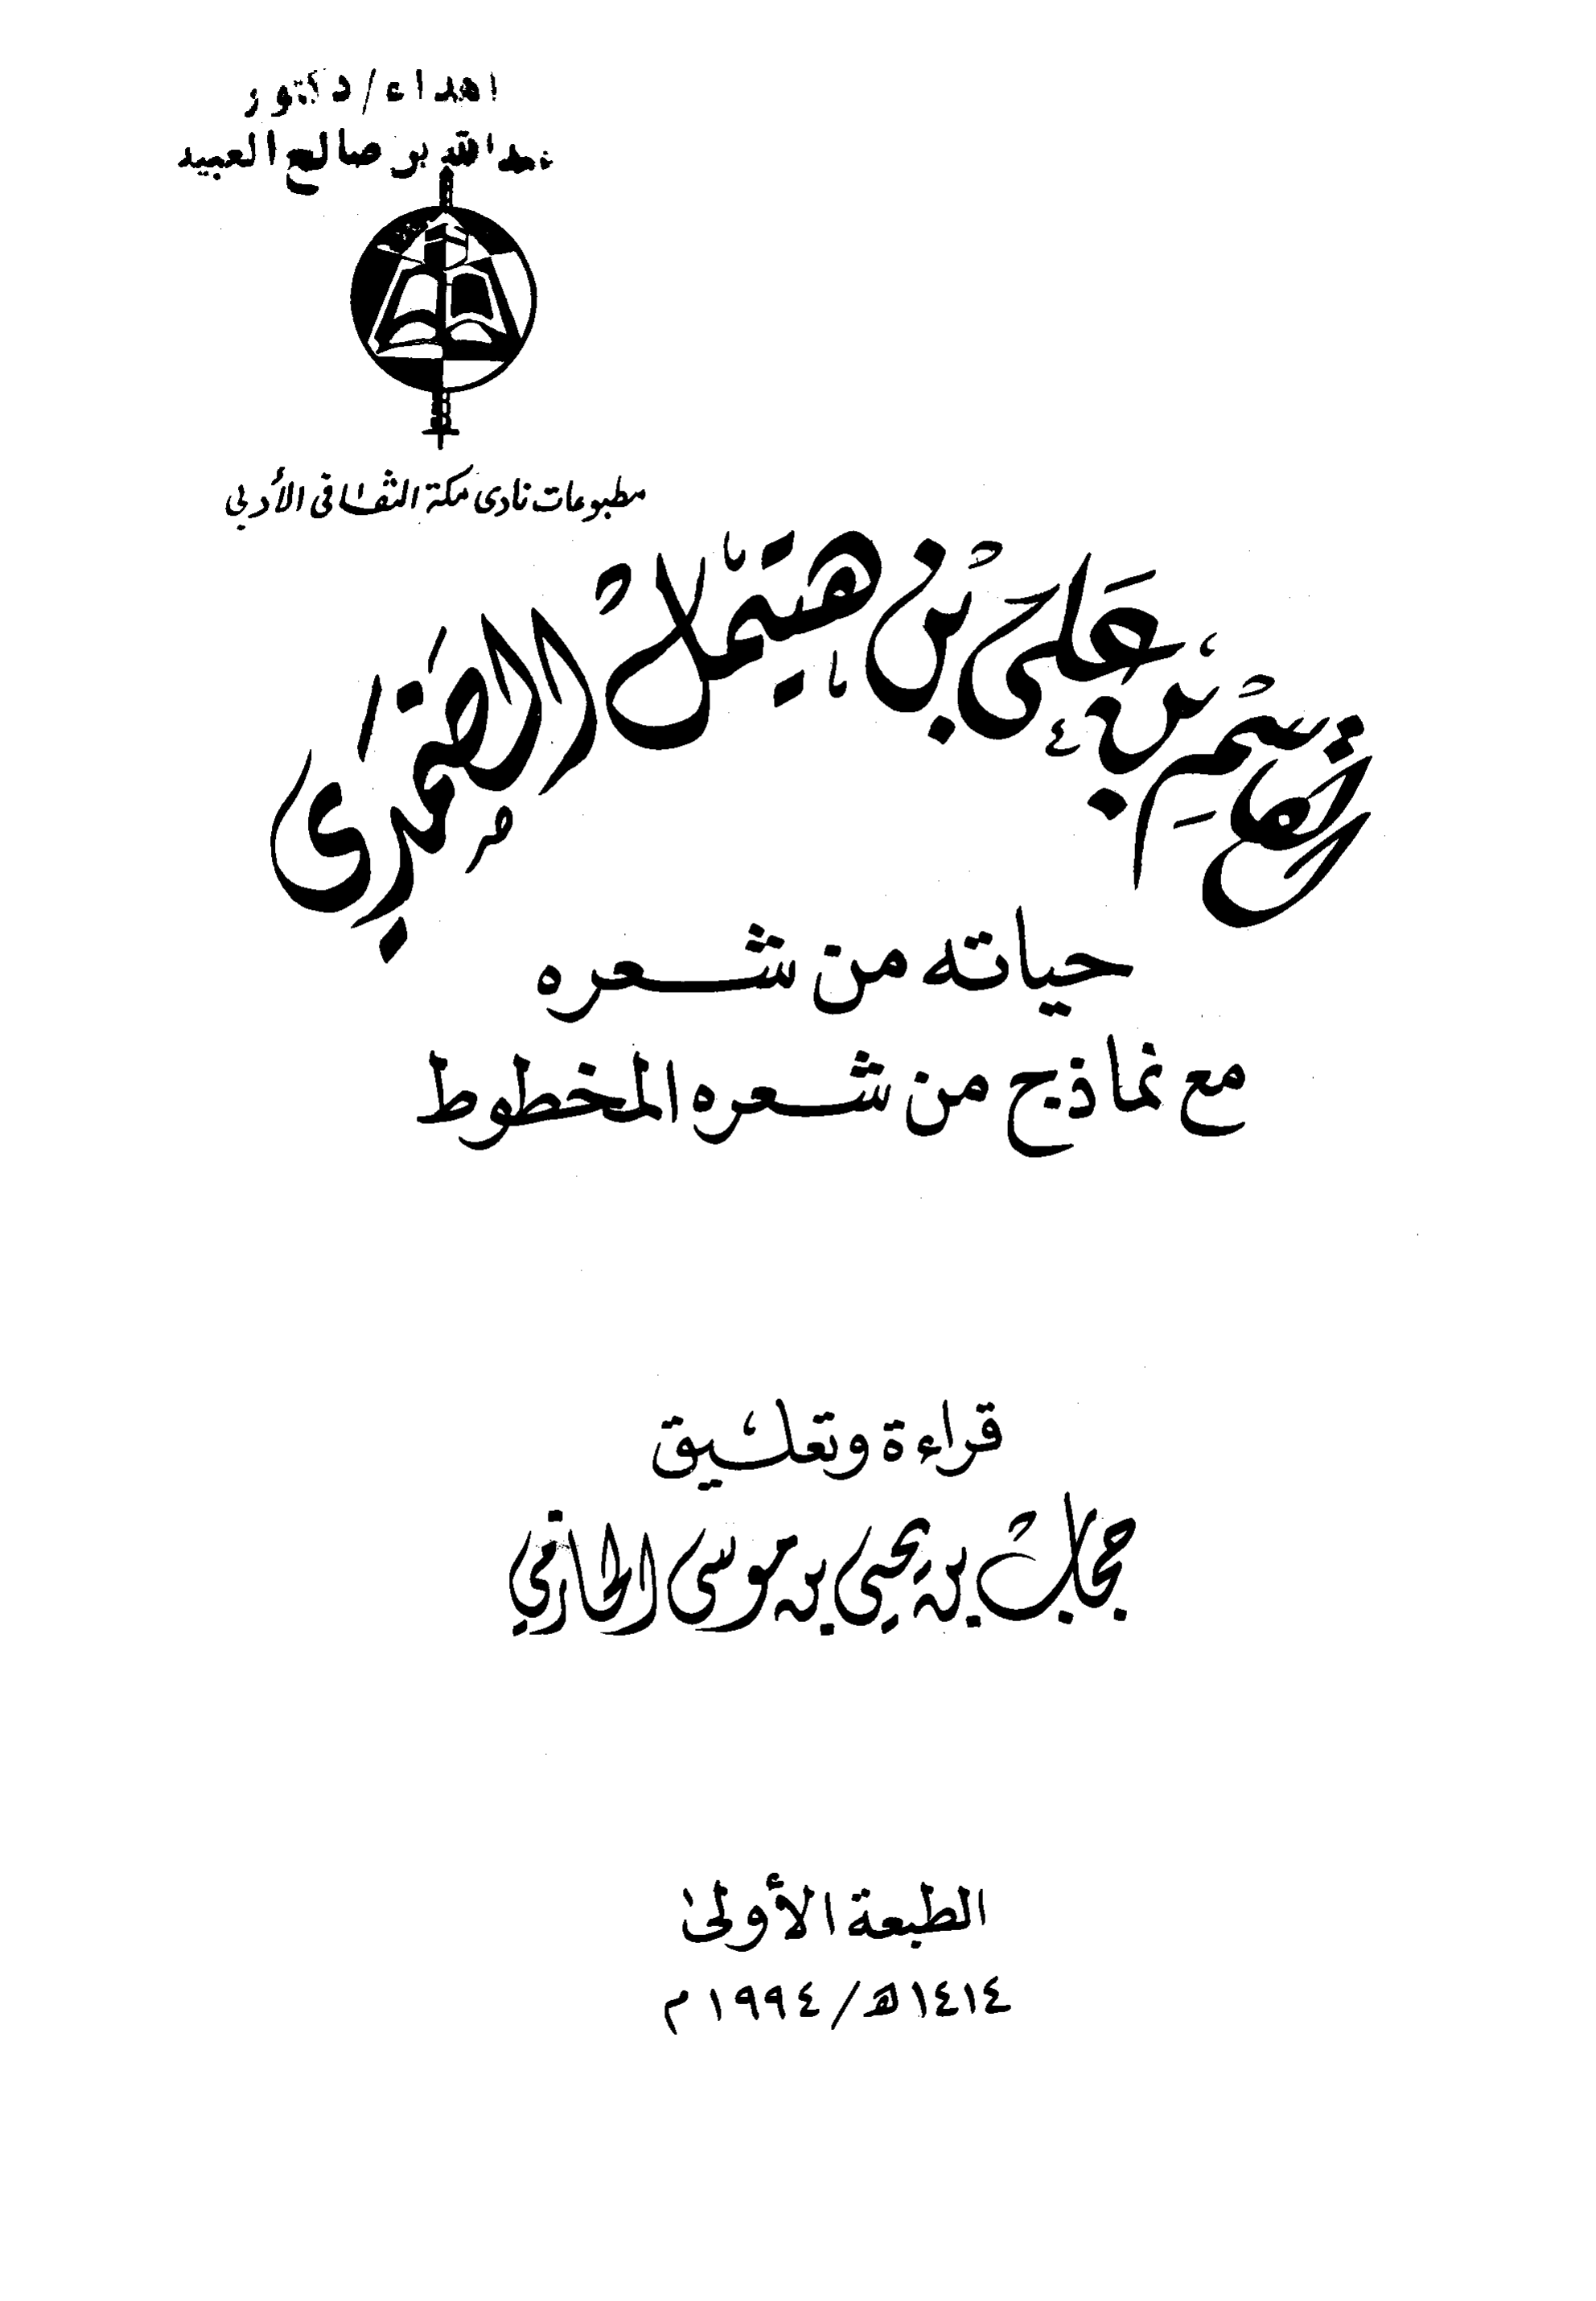 اهداء/دكتور
عبدالله بن صالح العبيد
مطبوعات نادى مكة الثقافى الأدبى
القاسم بن علي بن هتيمل الضمدى
حياته من شعره
مع نماذج من شعره المخطوط
قراءة وتعليق
حجاب بن يحيى بن موسى الحازمي
الطبعة الأولى
١٤١٤هـ/١٩٩٤م